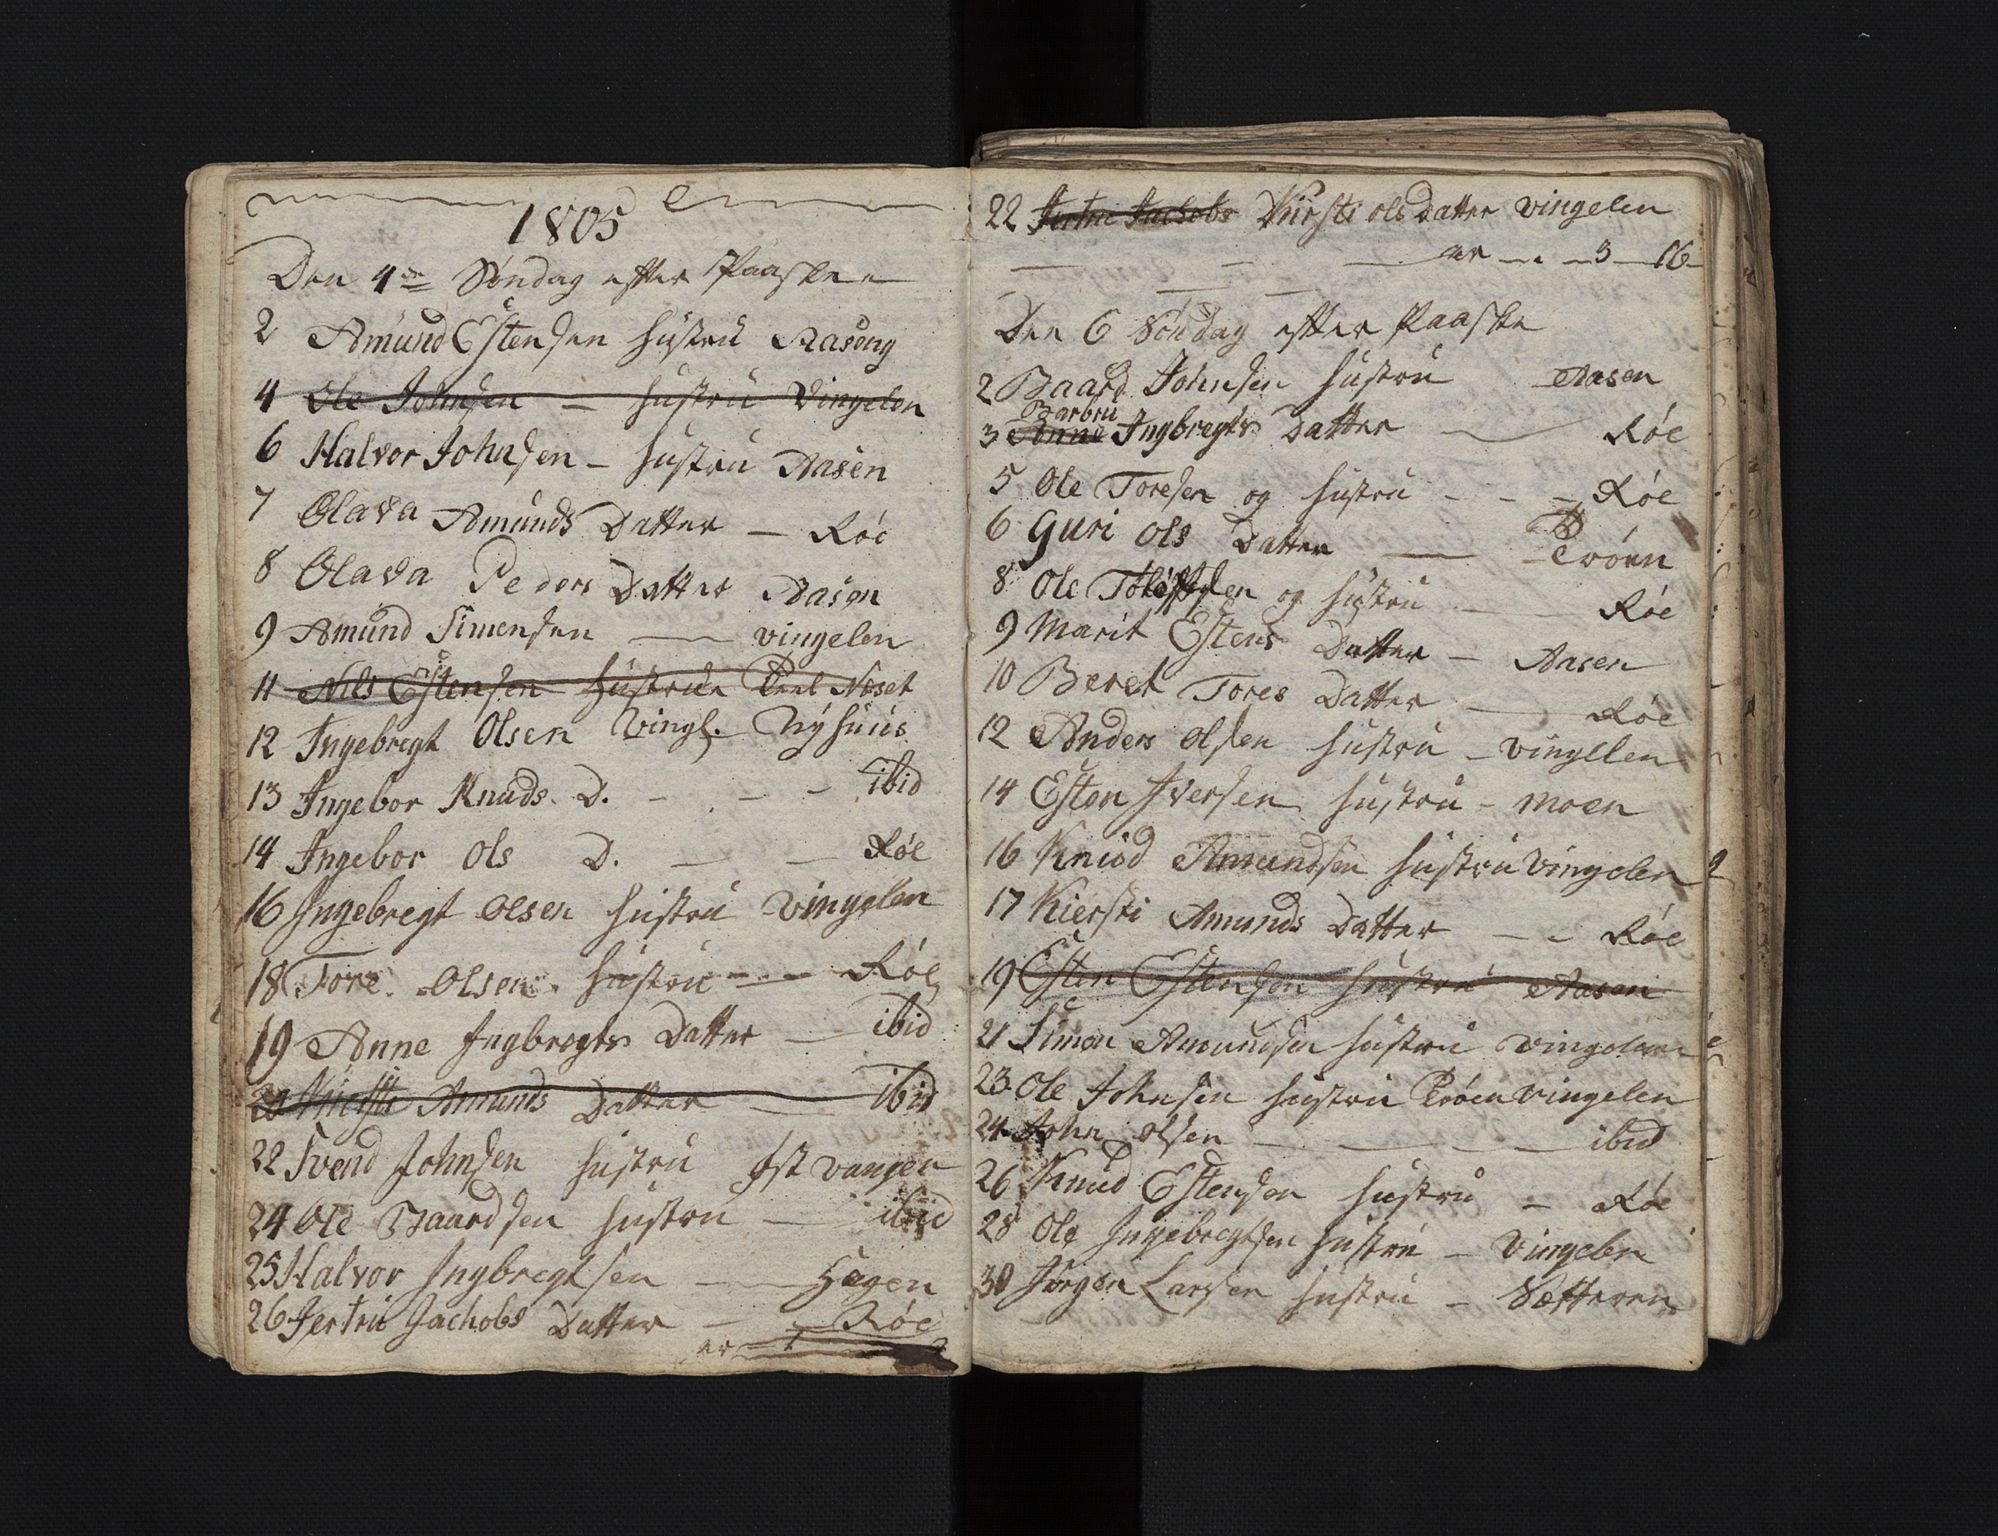 1805
Den 4de Søndag efter Paaske
2 Amund Estensen hustru Aaseng
4 Ole Johnsen – hustru Vingelen
6 Halvor Johnsen – hustru Aasen
7 Olava Amunds Datter — Røe
8 Olava Peders Datter Aasen
9 Amund Simensen — vingelen
11 Nils Estensen hustrue Næset
12 Ingebregt Olsen Vingl. Nÿhuus
13 Ingebor Knuds. D. - - - ibid
14 Ingebor Ols D. — — Røe
16 Ingebregt Olsen hustru Vingelen
18 Tore Olsen hustru - - Røe
19 Anne Ingbregts Datter — ibid
20 Kirsti Amunds Datter — ibid
22 Svend Johnsen hustru Østvangen
24 Ole Baardsen hustru — ibid
25 Halvor Ingbregtsen — Hagen
26 Jertru Jachobs Datter — Røe
er
22 Jertru Jachobs Kirsti olsDatter Vingelen
er - - 3 — 16
Den 6 Søndag efter Paaske
2 Baard Johnsen hustru Aasen
Barbru
3 Anne Ingbregts Datter — Røe
5 Ole Toresen og hustru - - - Røe
6 Guri Ols Datter — Trøen
8 Ole og hustru — Røe
9 Marit Estens Datter – Aasen
10 Beret Tores Datter — Røe
12 Anders Olsen hustru – vingelen
14 Esten Iversen hustru – Moen
16 Knud Amundsen hustru Vingelen
17 Kiersti Amunds Datter - - Røe
19 Esten Estensen hustru Aasen
21 Simon Amundsen hustru vingelen
23 Ole Johnsen hustru Trøen vingelen
24 John olsen - - - ibid
26 Knud Estensen hustru – Røe
28 Ole Ingebregtsen hustru – Vingelen
30 Jørgen Larsen hustru – Sætteren